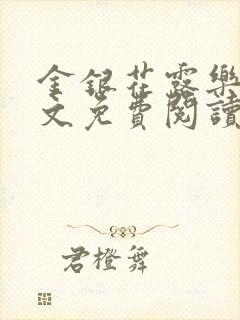 金銀花露樂
文免費閱讀
君橙舞